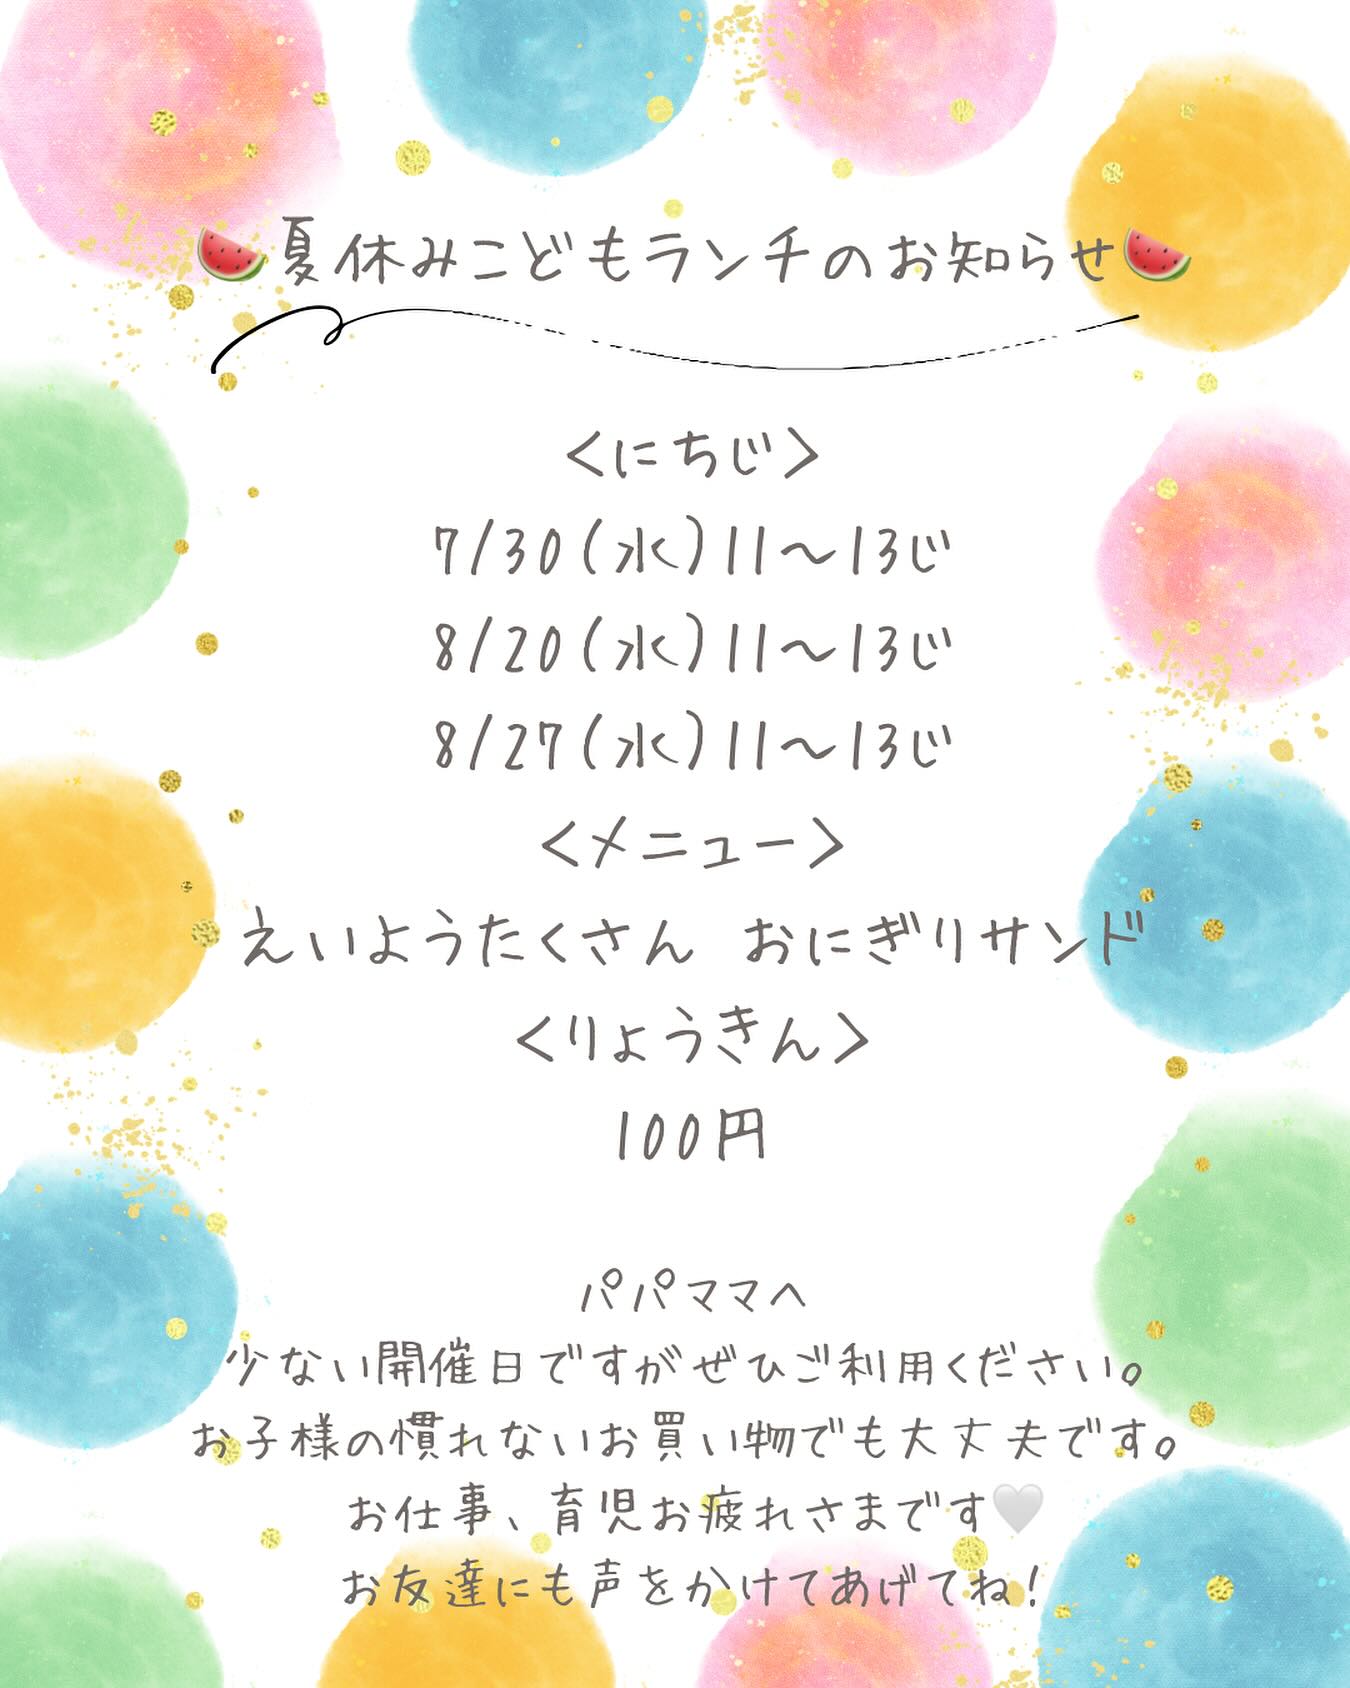 🍉夏休みこどもランチのお知らせ🍉
＜にちじ＞
7/30(水)11〜13じ
8/20(水)11〜13じ
8/27(水)11〜13じ
＜メニュー＞
えいようたくさん　おにぎりサンド
＜りょうきん＞
100円
パパママへ
少ない開催日ですがぜひご利用ください。
お子様の慣れないお買い物でも大丈夫です。
お仕事、育児お疲れさまです🤍
お友達にも声をかけてあげてね！